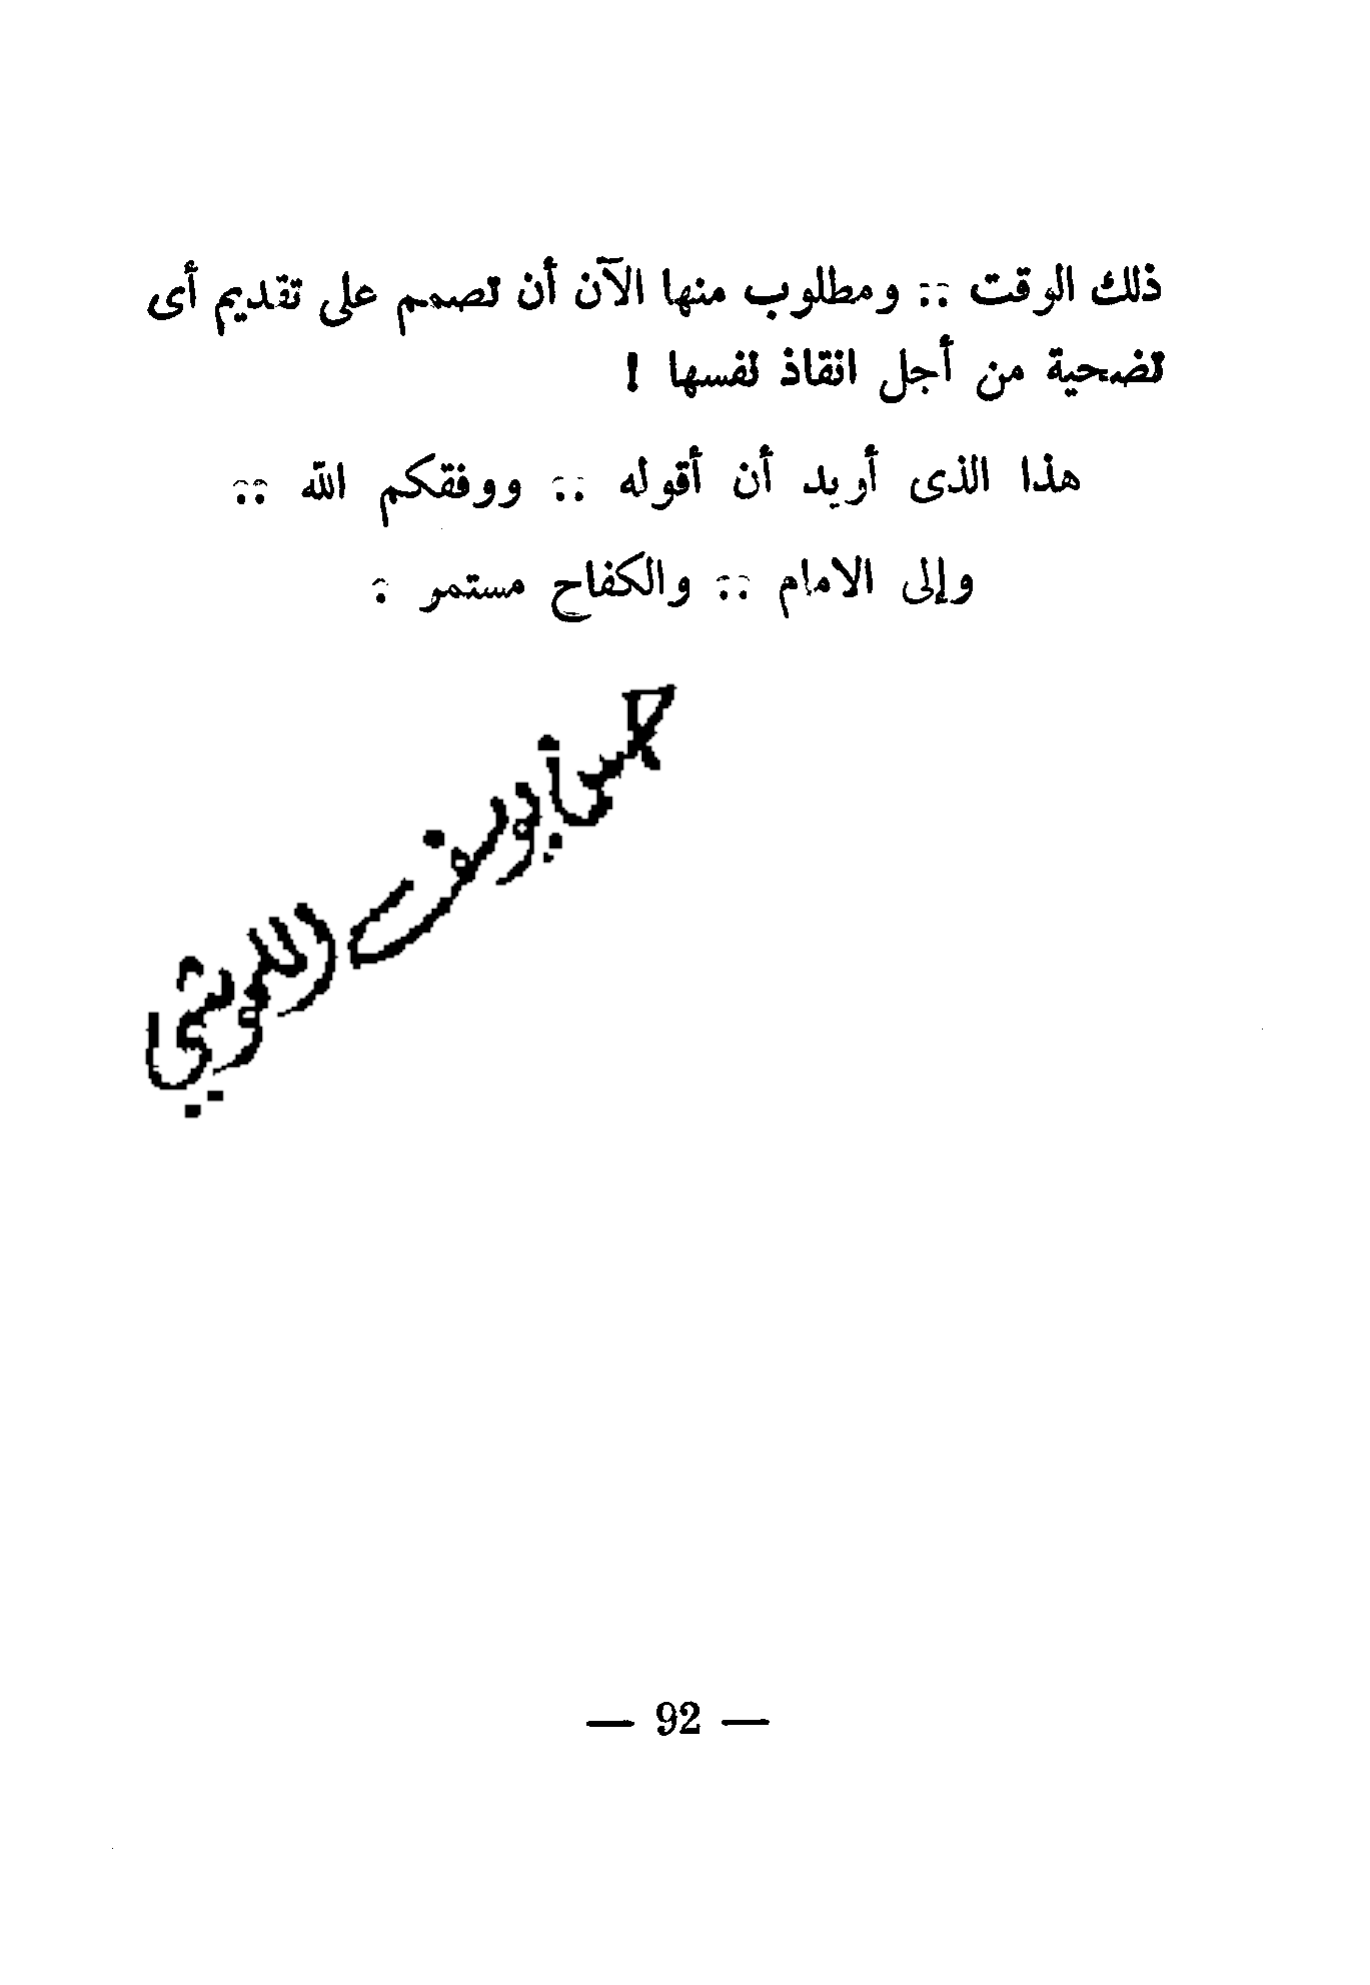 ذلك الوقت .. ومطلوب منها الآن أن تصمم على تقديم أى
تضحية من أجل انقاذ نفسها !
هذا الذى أريد أن أقوله .. ووفقكم الله ..
وإلى الامام .. والكفاح مستمر .
يوسف
— 92 —